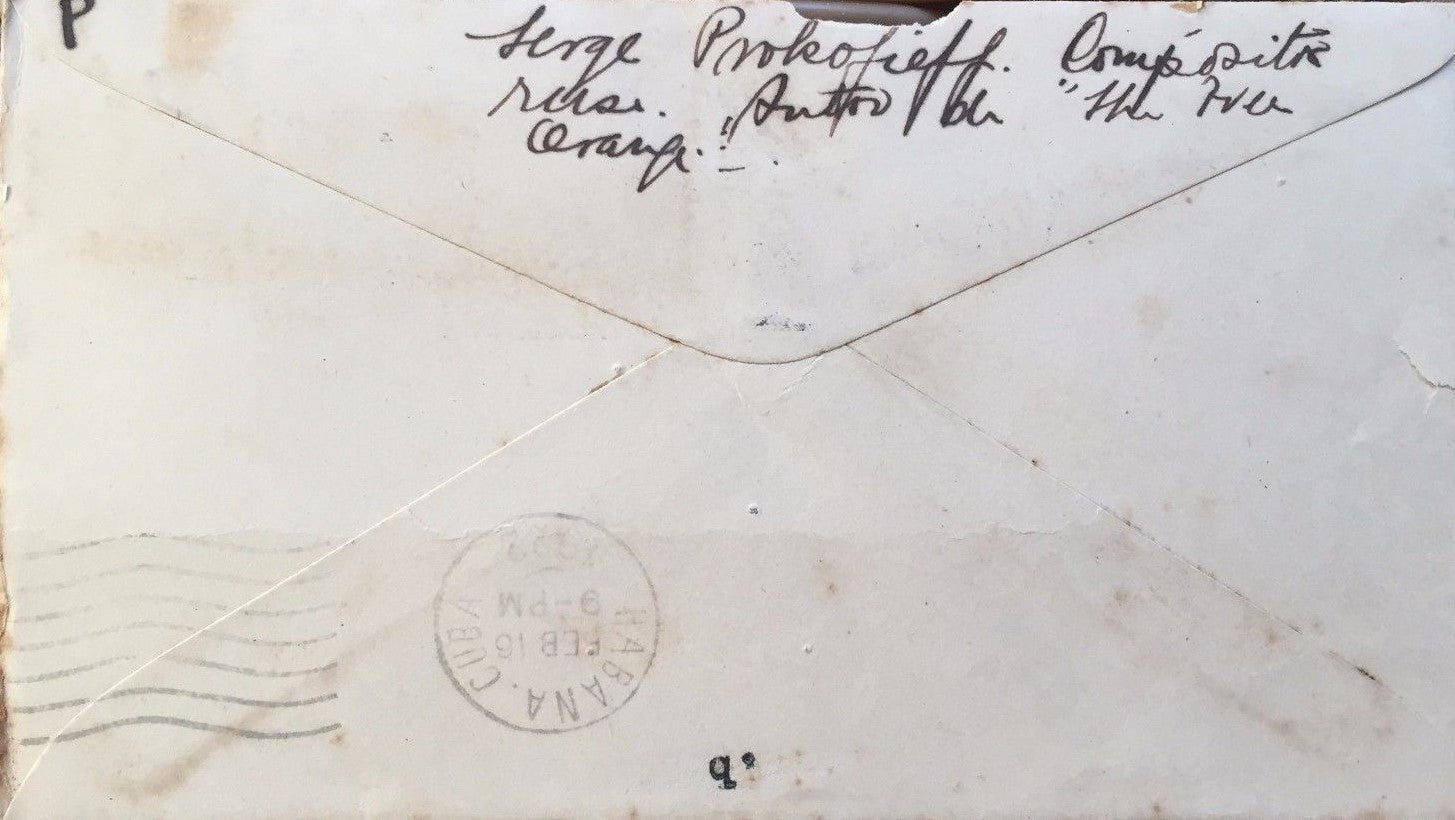 P
Serge Prokofieff. Compositor
ruso. "Autor de "The Three
Orange."
HABANA. CUBA
FEB 16
9-PM
1922